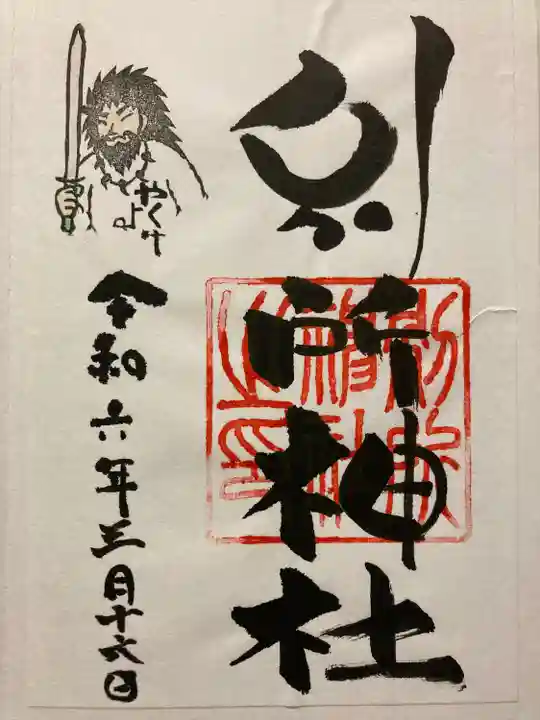 別所神社
やくけ
よ
令和六年三月十六日